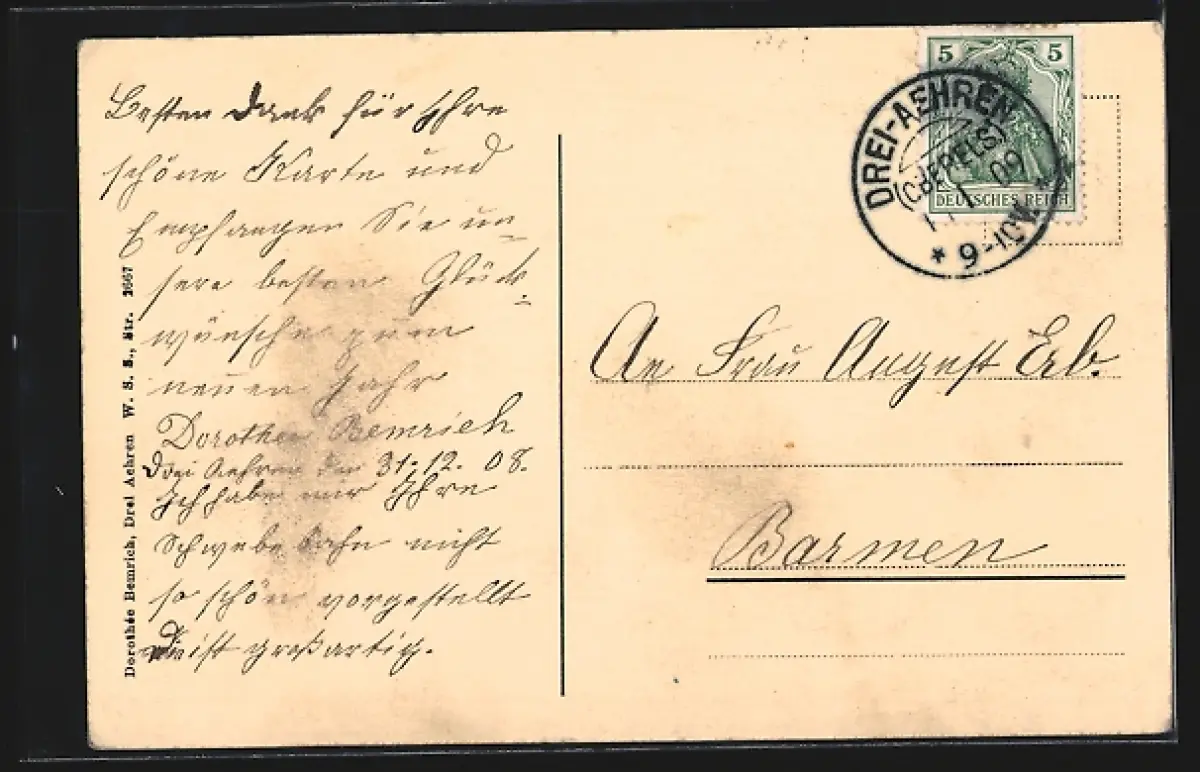 Besten Dank für Ihre
schöne Karte und
Empfangen Sie un-
sere besten Glück-
wünsche zum
neuen Jahr
Dorothee Bemrich
Drei Aehren den 31.12.08.
Ich habe mir Ihre
Schwebebahn nicht
so schön vorgestellt
Die ist großartig.
Dorothée Bemrich, Drei Aehren W. S. S., Str. 1667
5 5
DEUTSCHES REICH
DREI-AEHREN
(OBERELS)
1 09
* 9-10V. *
An Frau August Erb.
Barmen